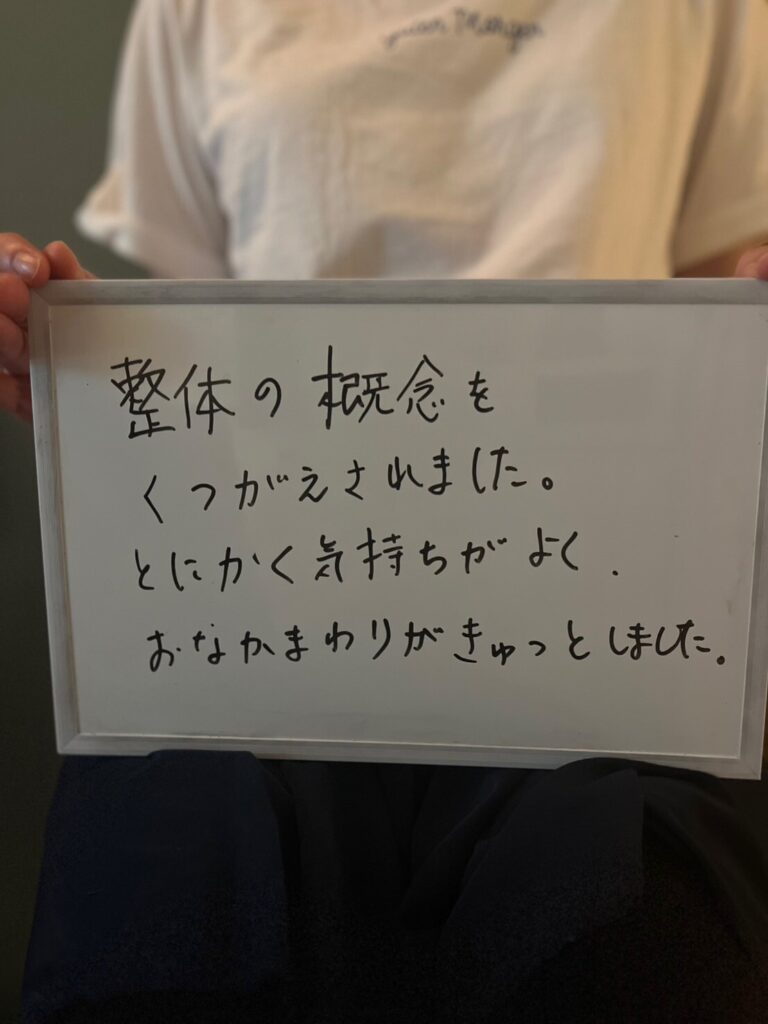 整体の概念を
くつがえされました。
とにかく気持ちがよく、
おなかまわりがきゅっとしました。